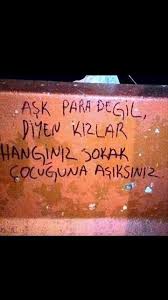 AŞK PARA DEĞİL,
DİYEN KIZLAR
HANGİNİZ SOKAK
ÇOCUĞUNA AŞIKSINIZ.